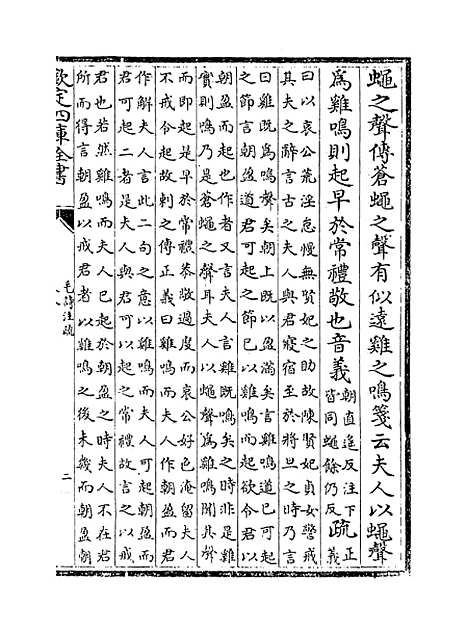 蠅之聲傳蒼蠅之聲有似遠雞之鳴箋云夫人以蠅聲
爲雞鳴則起早於常禮敬也音義朝直遥反注下
皆同蠅餘仍反疏正
義
曰以哀公荒淫怠慢無賢妃之助故陳賢妃貞女警戒
其夫之辭言古之夫人與君寢宿至於將旦之時乃言
曰雞既爲鳴聲矣朝上既以盈滿矣言雞鳴道已可起
之節言朝盈道君可起之節已以雞鳴而起欲令君以
朝盈而起也作者又言夫人言雞既鳴矣之時非是雞
實則鳴乃是蒼蠅之聲耳夫人以蠅聲爲雞鳴聞其聲
而即起是早於常禮恭敬過度而哀公好色淹留夫人
不戒令起故刺之傳正義曰雞鳴而夫人作朝盈而君
作解夫人言此二句之意以雞鳴而夫人可起朝盈而
君可起二者是夫人與君可起之常禮故言之以戒
君也若然雞鳴而夫人已起於朝盈之時夫人不在君
所而得言朝盈以戒君者以雞鳴之後未幾而朝盈朝
欽定四庫全書
毛詩注疏
二